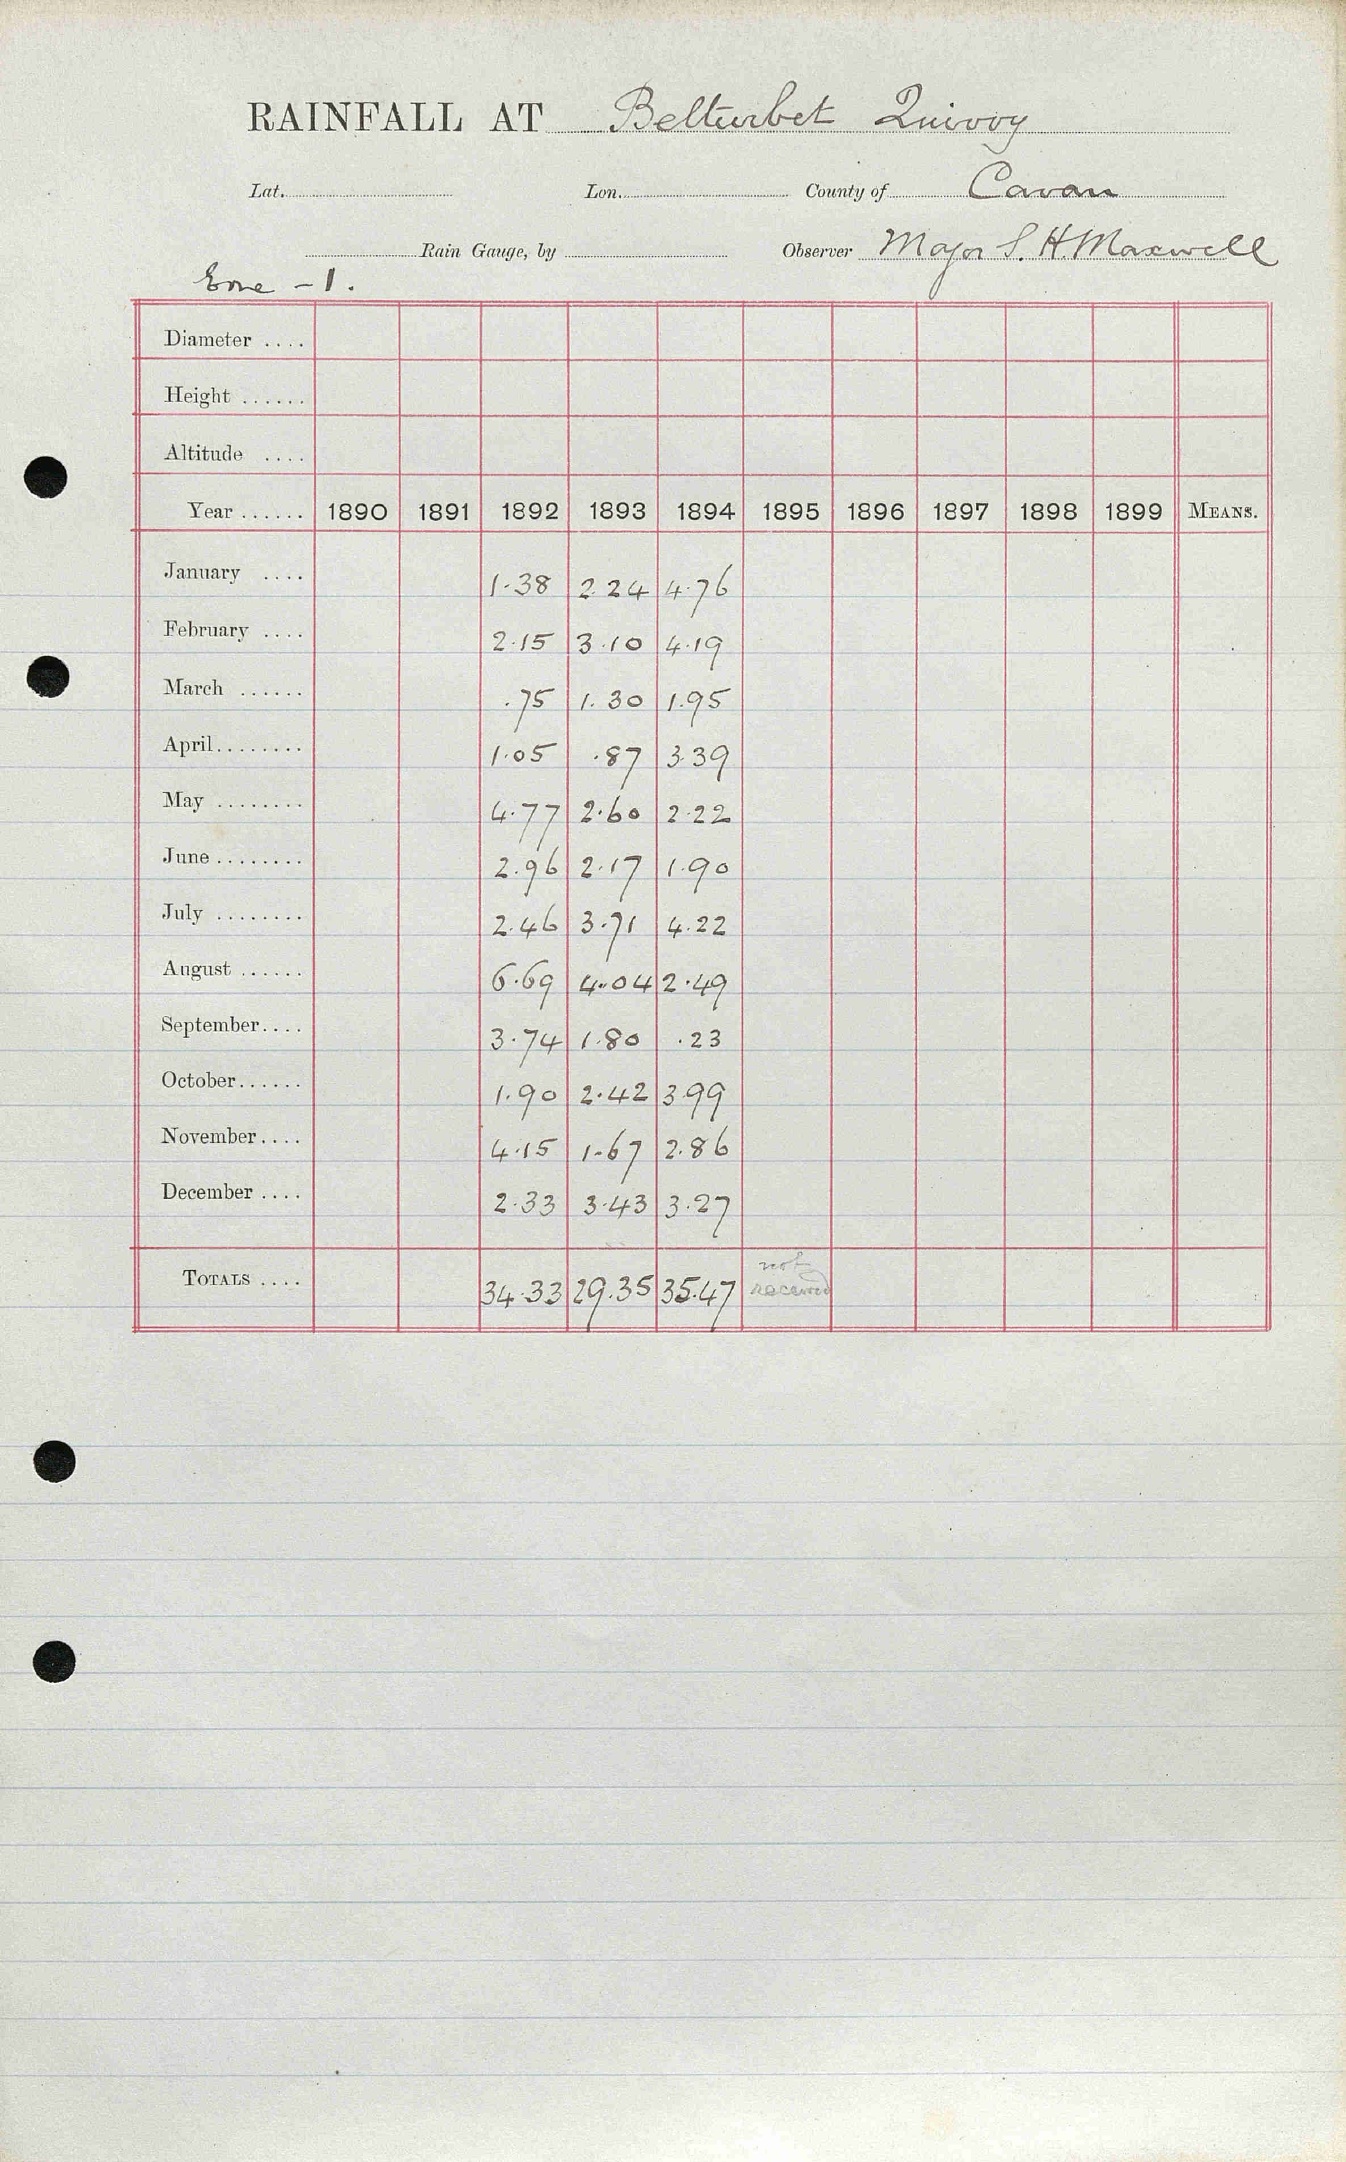 RAINFALL AT Belturbet Quivvy
Lat. Lon. County of Cavan
Rain Gauge, by Observer Major S. H. Maxwell
Erne - 1.
Diameter ....
Height ......
Altitude ....
Year ...... 1890 1891 1892 1893 1894 1895 1896 1897 1898 1899 MEANS.
January .... 1.38 2.24 4.76
February .... 2.15 3.10 4.19
March ...... .75 1.30 1.95
April........ 1.05 .87 3.39
May ........ 4.77 2.60 2.22
June........ 2.96 2.17 1.90
July ........ 2.46 3.71 4.22
August ...... 6.69 4.04 2.49
September.... 3.74 1.80 .23
October...... 1.90 2.42 3.99
November.... 4.15 1.67 2.86
December .... 2.33 3.43 3.27
TOTALS .... 34.33 29.35 35.47 not received